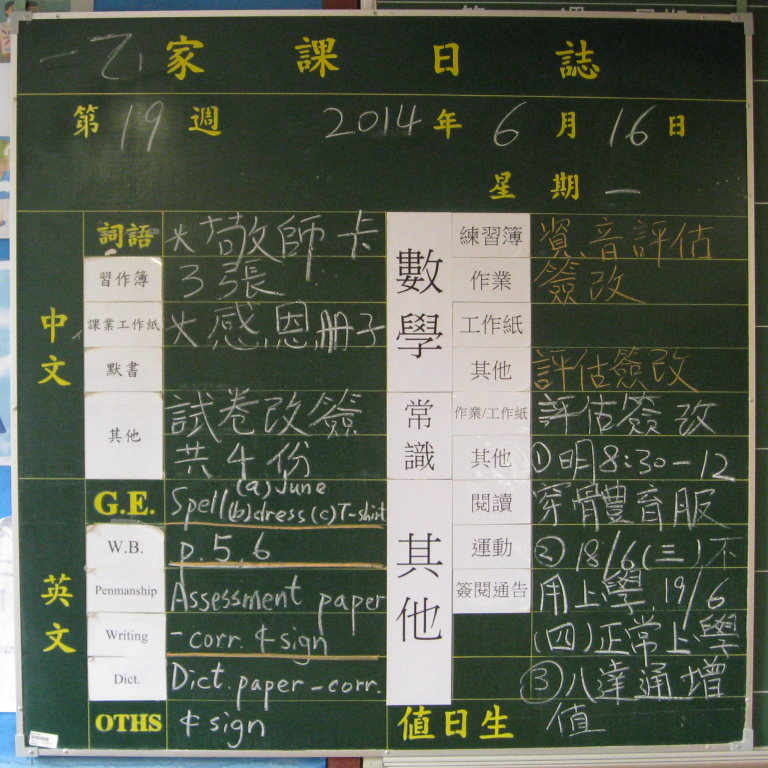 一乙家課日誌
第19週 2014年6月16日
星期一
中文
詞語 敬師卡
習作簿 3張
課業工作紙 感恩册子
默書
其他 試卷改簽
共4份
英文
G.E. Spell (a) June
(b) dress (c) T-shirt
W.B. p.5,6
Penmanship Assessment paper
Writing -corr. & sign
Dict. Dict. paper -corr.
OTHS & sign
數學
練習簿 評估
作業 簽改
工作紙
其他 評估簽改
常識
作業/工作紙 評估簽改
其他 ①明8:30-12
其他
閱讀 穿體育服
運動 ②18/6(三)不
簽閱通告 用上學, 19/6
(四)正常上學
③八達通增
值日生 值